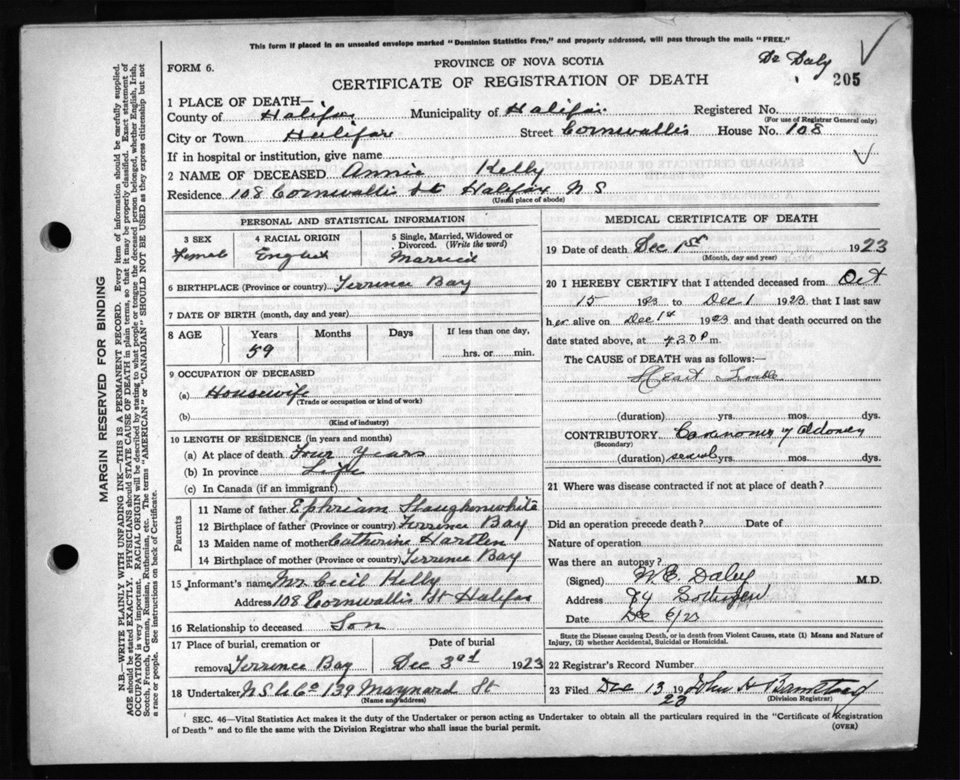 This form if placed in an unsealed envelope marked "Dominion Statistics Free," and properly addressed, will pass through the mails "FREE."
Dr Daly
FORM 6.
PROVINCE OF NOVA SCOTIA
CERTIFICATE OF REGISTRATION OF DEATH
205
1 PLACE OF DEATH—
County of Halifax Municipality of Halifax Registered No.
(For use of Registrar General only)
City or Town Halifax Street Cornwallis House No. 108
If in hospital or institution, give name
2 NAME OF DECEASED Annie Kelly
Residence 108 Cornwallis St Halifax N S
(Usual place of abode)
PERSONAL AND STATISTICAL INFORMATION
3 SEX
Female
4 RACIAL ORIGIN
English
5 Single, Married, Widowed or Divorced. (Write the word)
Married
6 BIRTHPLACE (Province or country) Terrence Bay
7 DATE OF BIRTH (month, day and year)
8 AGE Years Months Days If less than one day,
59 hrs. or min.
9 OCCUPATION OF DECEASED
(a) Housewife
(Trade or occupation or kind of work)
(b)
(Kind of industry)
10 LENGTH OF RESIDENCE (in years and months)
(a) At place of death Four Years
(b) In province Life
(c) In Canada (if an immigrant)
Parents
11 Name of father Ephriam Slaughenwhite
12 Birthplace of father (Province or country) Terrence Bay
13 Maiden name of mother Catherine Hartlen
14 Birthplace of mother (Province or country) Terrence Bay
15 Informant's name Mr Cecil Kelly
Address 108 Cornwallis St Halifax
16 Relationship to deceased Son
17 Place of burial, cremation or Date of burial
removal Terrence Bay Dec 3rd 1923
18 Undertaker N S U Co 139 Maynard St
(Name and address)
MEDICAL CERTIFICATE OF DEATH
19 Date of death Dec 1st 1923
(Month, day and year)
20 I HEREBY CERTIFY that I attended deceased from Oct
15 1923 to Dec 1 1923 that I last saw
her alive on Dec 1st 1923 and that death occurred on the
date stated above, at 4.30 P m.
The CAUSE of DEATH was as follows:—
Heart Trouble
(duration) yrs. mos. dys.
CONTRIBUTORY
(Secondary)
(duration) yrs. mos. dys.
21 Where was disease contracted if not at place of death?
Did an operation precede death? Date of
Nature of operation
Was there an autopsy?
(Signed) W E Daley M.D.
Address 84
Date Dec 6/23
State the Disease causing Death, or in death from Violent Causes, state (1) Means and Nature of Injury, (2) whether Accidental, Suicidal or Homicidal.
22 Registrar's Record Number
23 Filed Dec 13 1923 John H
(Division Registrar)
SEC. 46—Vital Statistics Act makes it the duty of the Undertaker or person acting as Undertaker to obtain all the particulars required in the "Certificate of Registration
of Death" and to file the same with the Division Registrar who shall issue the burial permit.
(OVER)
MARGIN RESERVED FOR BINDING
N.B.—WRITE PLAINLY WITH UNFADING INK—THIS IS A PERMANENT RECORD. Every item of information should be carefully supplied.
AGE should be stated EXACTLY. PHYSICIANS should STATE CAUSE OF DEATH in plain terms, so that it may be properly classified. Exact statement of
OCCUPATION is very important. RACIAL ORIGIN will be described by stating to what people or tongue the deceased person belonged, whether English, Irish,
Scotch, French, German, Russian, Ruthenian, etc. The terms "AMERICAN" or "CANADIAN" SHOULD NOT BE USED as they express citizenship but not
a race or people. See instructions on back of Certificate.